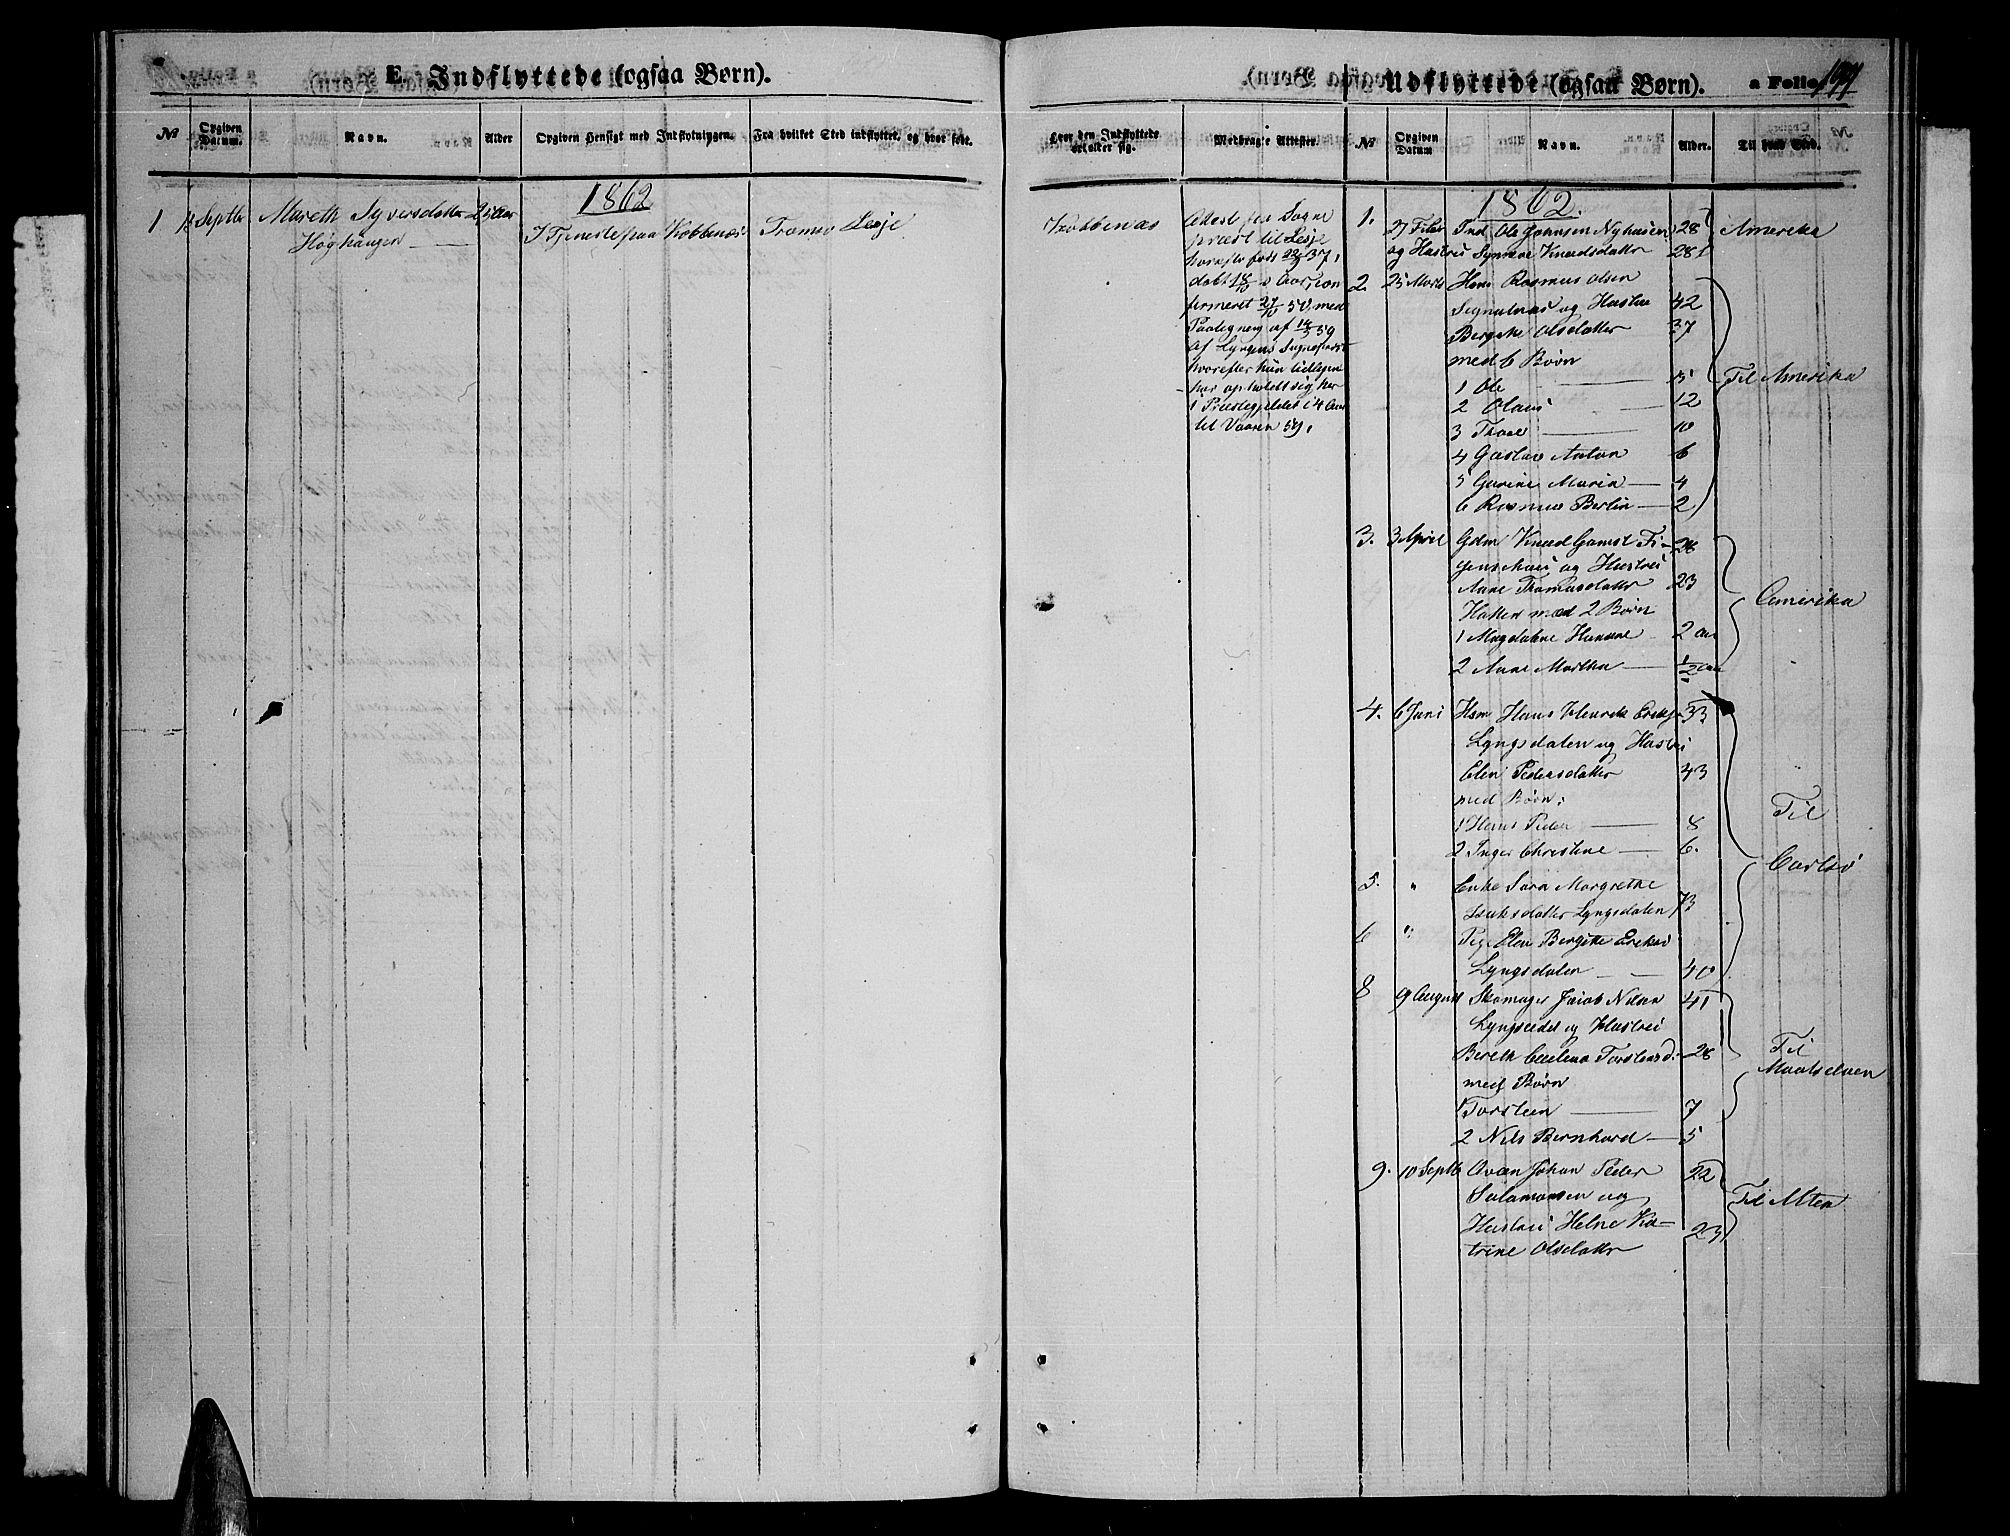 E. Indflyttede (ogsaa Børn).
№ Opgiven Datum. Navn. Alder Opgiven Hensigt med Indflytningen. Fra hvilket Sted indflyttet, og hvor født.
1862
1 18 Septbr Mareth Syversdatter 25 Aar I Tjeneste paa Kobbenæs Tromsø Lesje
Høghaugen
Udflyttede (ogsaa Børn). a Folio 197
Hvor den Indflyttede opholder sig. Medbragte Attester. № Opgiven Datum Navn. Alder. Til hvad Sted.
Kobbenæs
Attest fra Sogne
præst til Lesje
hvorefter født 37,
døbt s. Aar, con
firmeret 50, med
Paategning af 59
af Lyngens Sognepræst
hvorefter hun tidligere
har opholdt sig her
i Præstegjeldet i 4 Aar
til Vaaren 59,
1862.
1. 27 Febr Ind. Ole Johnsen Nyhusen 28 Amerika
og Hustru Synneve Knudsdatter 28
2. 25 Marts Hsm Rasmus Olsen
Signalnæs og Hustru 42
Bergethe Olsdatter 37
med 6 Børn
1 Ole 15 Til Amerika
2 Olaus 12
3 Thore 10
4 Gustav Anton 6
5 Gurine Maria 4
6 Rasmus Berlin 2
3. 3 April Gdm Knud Gamst Fi- 28
genschou og Hustru
Anne Thomasdatter 23
Hatten med 2 Børn Amerika
1 Magdalene Hanne 2 aar
2 Anne Martha ½ aar
4. 6 Juni Hsm Hans Henrik Eriks. 33
Lyngsdalen og Hustru
Elen Pedersdatter 43
med Børn:
1 Hans Peder 8 Til
2 Inger Christine 6. Carlsø
5. " Enke Sara Margrethe
Isaksdatter Lyngsdalen 73
6 " Pig. Elen Bergitte Eriks.
Lyngsdalen 40
8 9 August Skomager Jacob Nilsen 41
Lyngseidet og Hustru
Bereth Torstensd. 28 Til
med Børn Maalselven
1 Torsten 7
2 Nils Bernhard 5
9. 10 Septb Qvæn Johan Peder 22
Salamonsen og Til Alten
Hustru Helne Ka- 23
trine Olsdatter